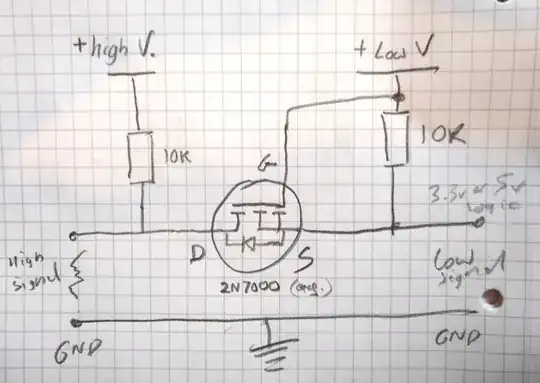 + high V.
+ Low V
10K
10K
G
3.3v or 5v
logic
D
S
High
signal
2N7000
Low
signal
GND
GND